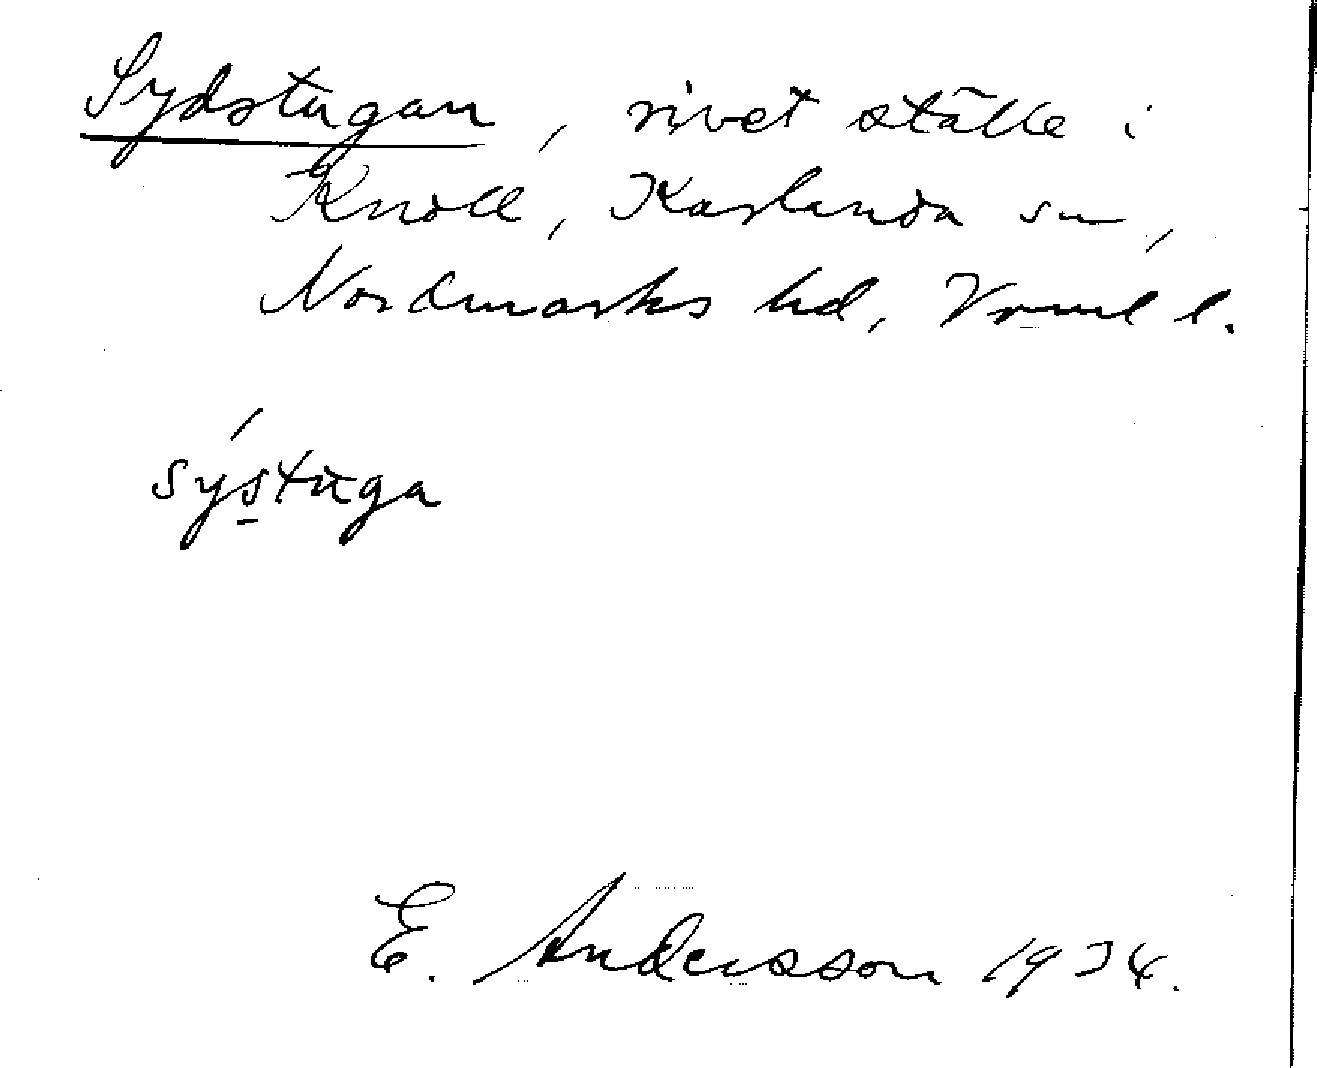 Sydstugan, rivet ställe i
Knoll, Karlanda sn,
Nordmarks hd, Vrml l.
systuga
E. Andersson 1934.